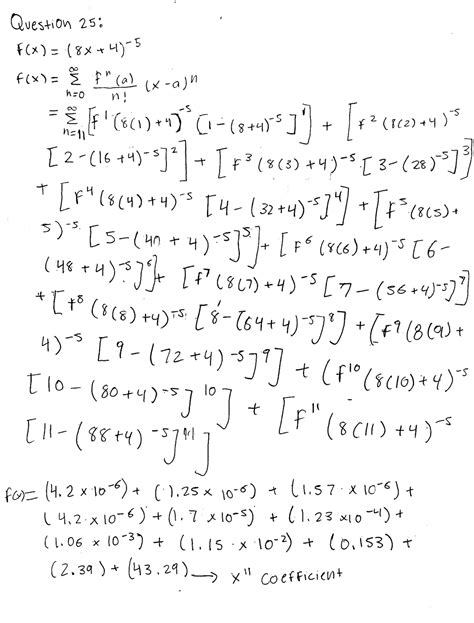 Question 25:
f(x) = (8x + 4)^-5
f(x) = ∞ Σ n=0 f^n(a) / n! (x - a)^n
= ∞ Σ n=11 [f^1 (8(1)+4)^-5 [1-(8+4)^-5]^1] + [f^2 (8(2)+4)^-5
[2-(16+4)^-5]^2] + [f^3 (8(3)+4)^-5 [3-(28)^-5]^3
+ [f^4 (8(4)+4)^-5 [4-(32+4)^-5]^4] + [f^5 (8(5)+
5)^-5 [5-(40+4)^-5]^5] + [f^6 (8(6)+4)^-5 [6-
(48+4)^-5]^6] + [f^7 (8(7)+4)^-5 [7-(56+4)^-5]^7]
+ [f^8 (8(8)+4)^-5 [8-(64+4)^-5]^8] + [f^9 (8(9)+
4)^-5 [9-(72+4)^-5]^9] + (f^10 (8(10)+4)^-5
[10-(80+4)^-5]^10] + [f^11 (8(11)+4)^-5
[11-(88+4)^-5]^11]
f(x) = (4.2 x 10^-6) + (1.25 x 10^-6) + (1.57 x 10^-6) +
(4.2 x 10^-6) + (1.7 x 10^-5) + (1.23 x 10^-4) +
(1.06 x 10^-3) + (1.15 x 10^-2) + (0.153) +
(2.39) + (43.29) → x^11 coefficient